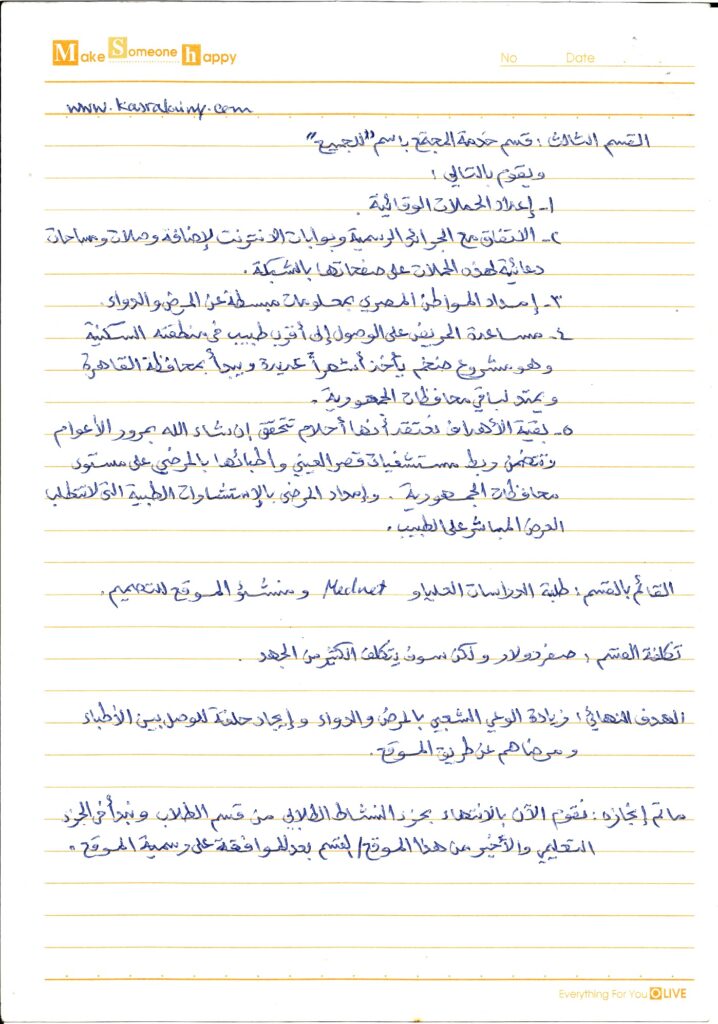 Make Someone happy
No Date
www.kasralainy.com
القسم الثالث : قسم خدمة المجتمع باسم "للجميع"
ويقوم بالتالي :
١- إعداد الحملات الوقائية .
٢- الاتفاق مع الجرائد الرسمية وبوابات الانترنت لإضافة وصلات ومساحات
دعائية لهذه الحملات على صفحاتها بالشبكة .
٣- إمداد المواطن المصري بمعلومات مبسطة عن المرض والدواء .
٤- مساعدة المريض على الوصول إلى أقرب طبيب في منطقته السكنية
وهو مشروع ضخم يأخذ أشهراً عديدة ويبدأ بمحافظة القاهرة
ويمتد لباقي محافظات الجمهورية .
٥- بقية الأهداف نعتقد أنها أحلام تتحقق إن شاء الله بمرور الأعوام
وتتضمن ربط مستشفيات قصر العيني وأطبائها بالمرضى على مستوى
محافظات الجمهورية . وإمداد المرضى بالإستشارات الطبية التى لا تتطلب
العرض المباشر على الطبيب .
القائم بالقسم : طلبة الدراسات العليا و Mednet و منشئو الموقع للتصميم .
تكلفة القسم : صفر دولار ولكن سوف يتكلف الكثير من الجهد .
الهدف النهائي : زيادة الوعي الشعبي بالمرض والدواء وإيجاد حلقة للوصل بين الأطباء
ومرضاهم عن طريق الموقع .
ما تم إنجازه : نقوم الآن بالانتهاء بجزء النشاط الطلابي من قسم الطلاب ونبدأ في الجزء
التعليمي والأخير من هذا الموقع/القسم بعد الموافقة على رسمية الموقع .
Everything For You OLIVE